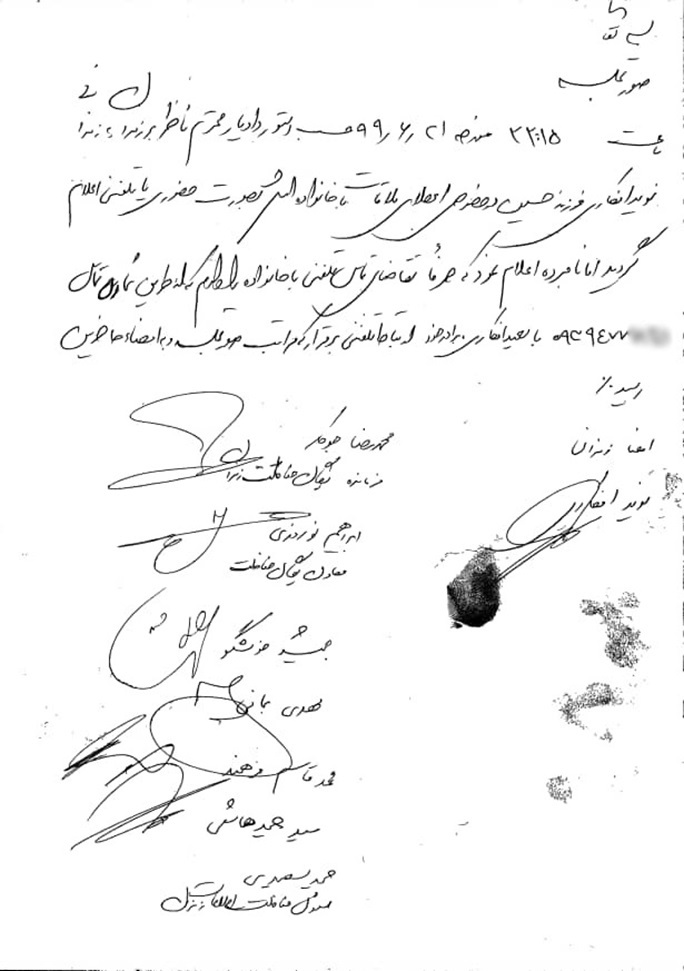 بسمه تعالی
صورتجلسه
ساعت ۲۲:۱۵ مورخه ۹۹٫۶٫۲۱ حسب دستور دادیار محترم ناظر بر زندان به زندانی
نوید افکاری فرزند حسین در خصوص اعطای ملاقات با خانواده اش بصورت حضوری یا تلفنی اعلام
گردید اما نامبرده اعلام نمود که صرفا تقاضای تماس تلفنی با خانواده را دارم که از طریق شماره تماس
۰۹۳۹۴۷۷ با سعید افکاری برادر خود ارتباط تلفنی برقرار که مراتب صورتجلسه و به امضاء حاضرین
رسید ٪
امضا زندانی
نوید افکاری
محمدرضا جوکار
فرمانده یگان حفاظت زندان
ابراهیم نوروزی
معاون یگان حفاظت
جمشید خوشگو
مهدی
محمد قاسم
سید حمید هاشمی
حمید
مسئول حفاظت اطلاعات زندان